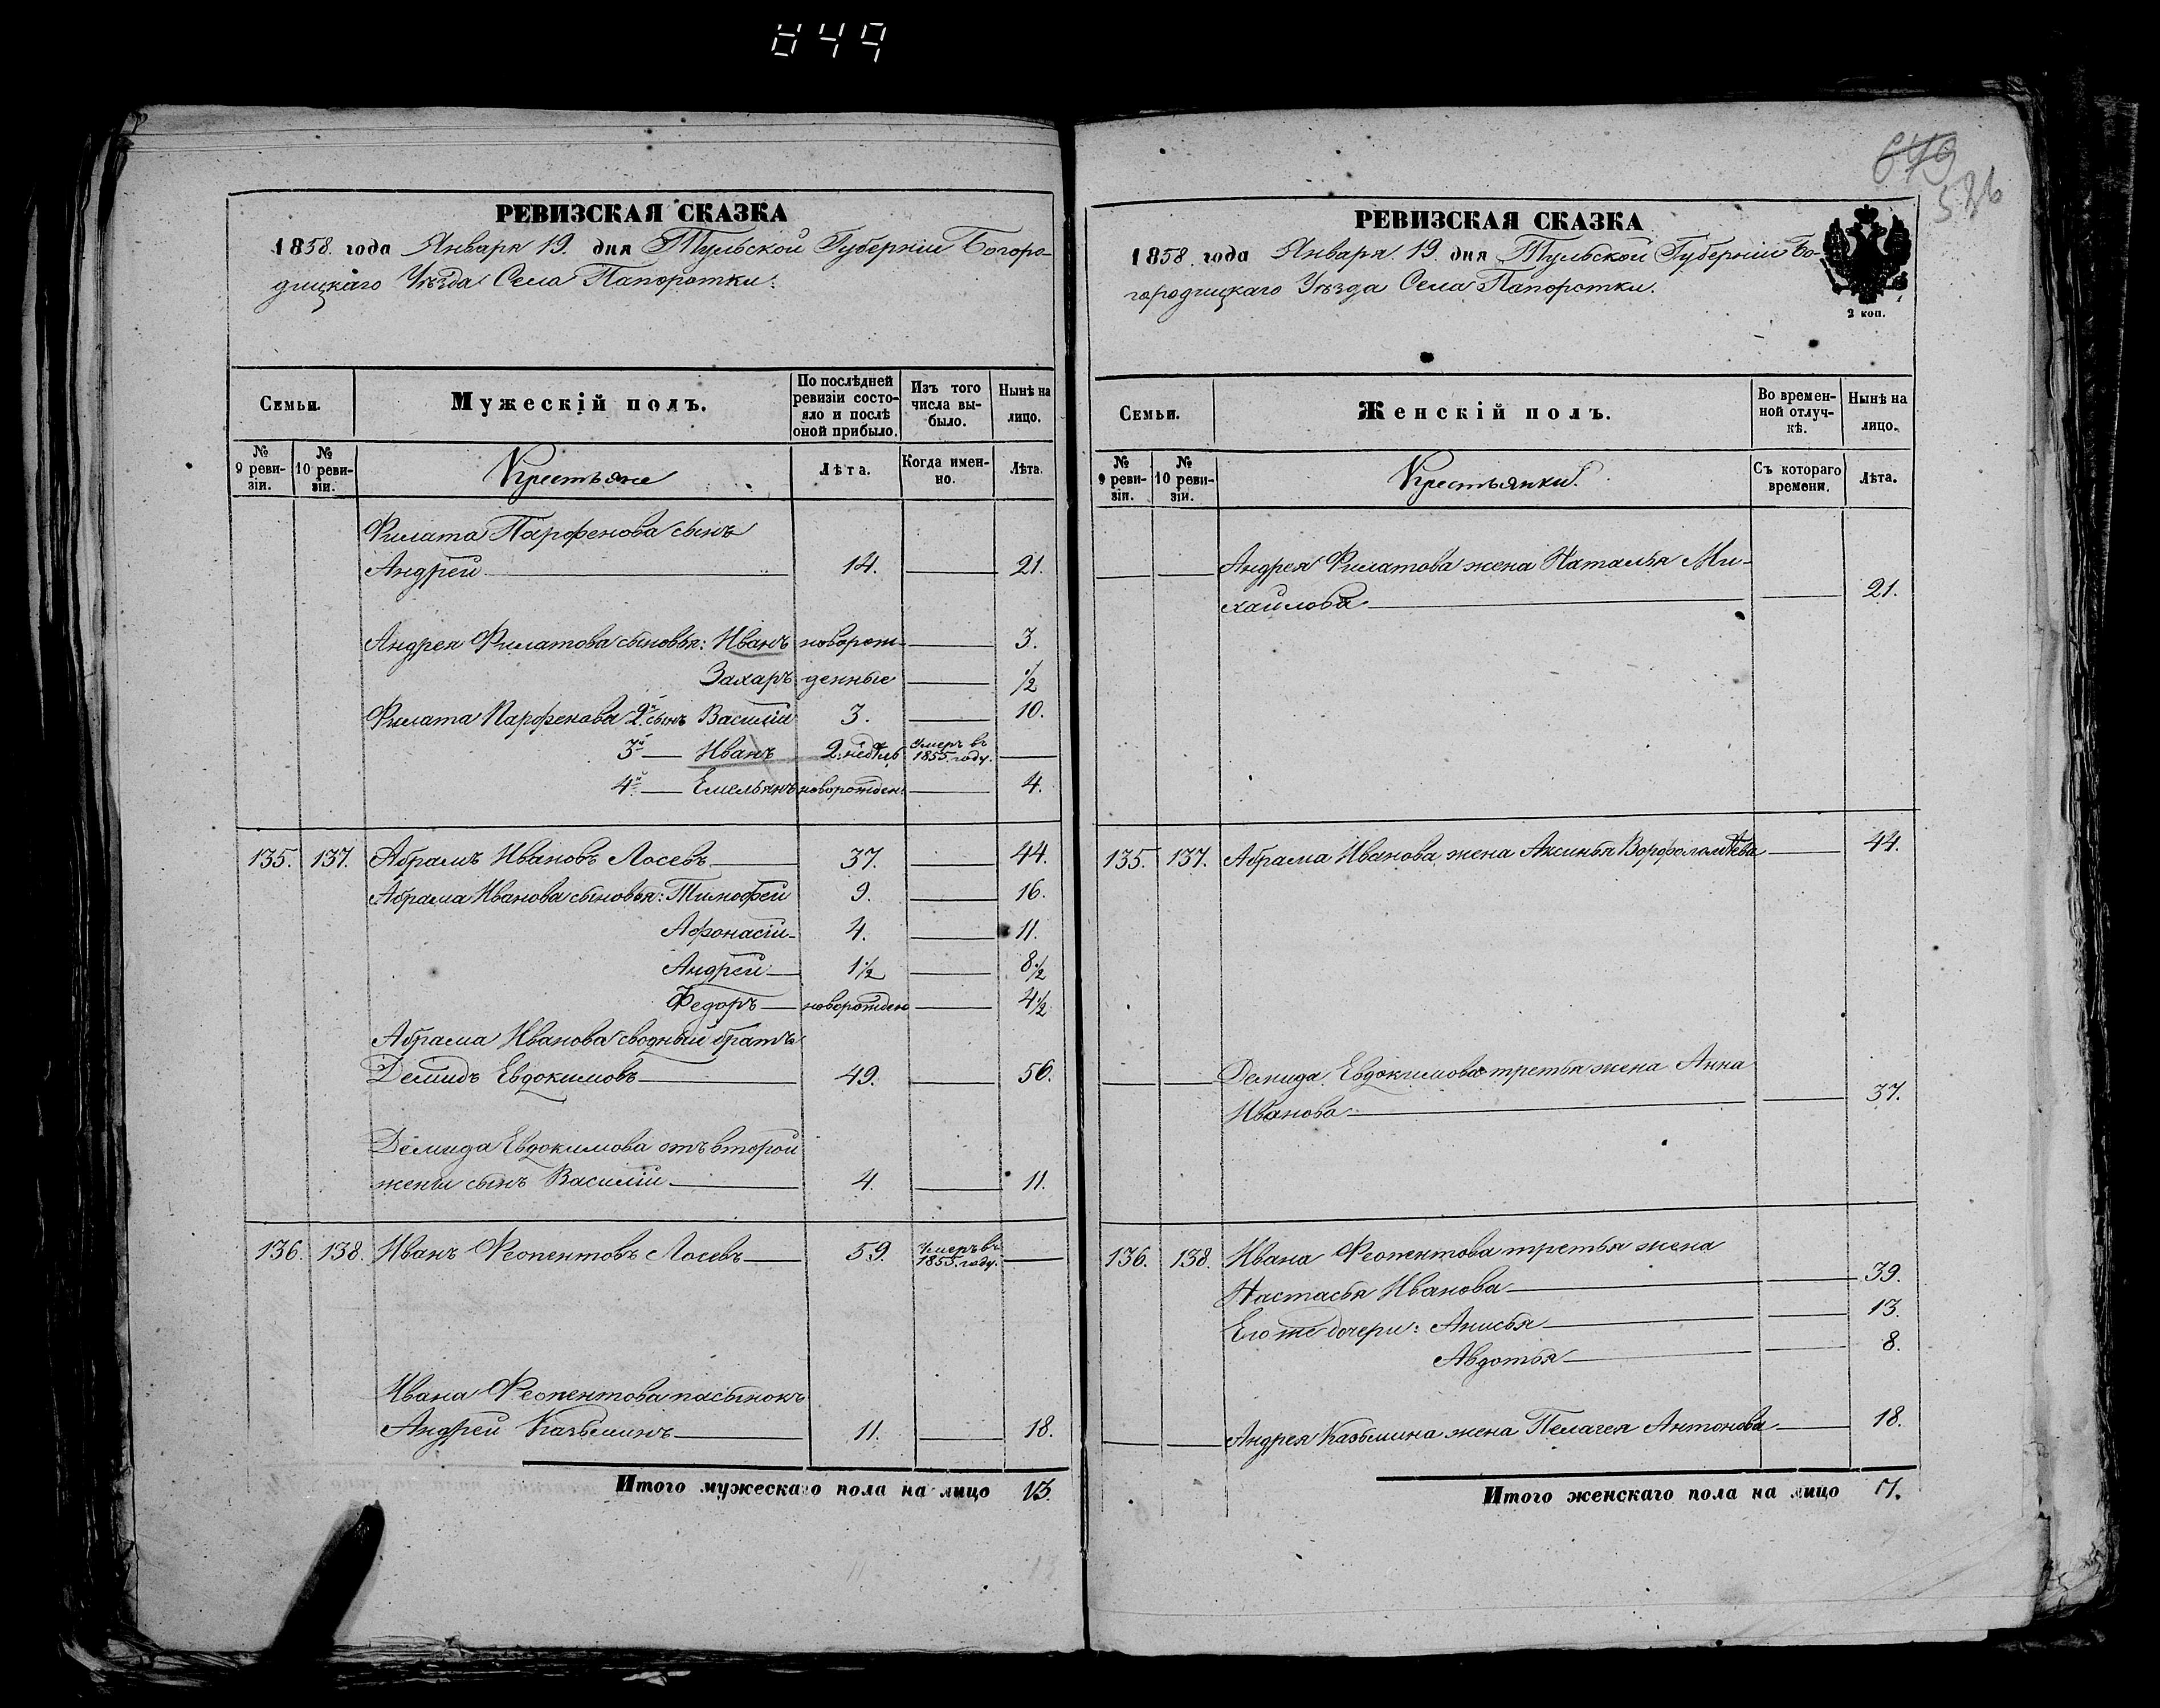 849
РЕВИЗСКАЯ СКАЗКА
1858. года Января 19. дня Тульской Губерніи Богоро-
дицкаго Уѣзда Села Папоротки.
Семьи.
Мужескій полъ.
По послѣдней ревизіи состо-яло и послѣ оной прибыло.
Изъ того числа вы-было.
Нынѣ на лицо.
№ 9 реви-зіи.
№ 10 реви-зіи.
Крестьяне
Лѣта.
Когда имен-но.
Лѣта.
Филата Парфенова сынъ
Андрей 14. 21.
Андрея Филатова сыновья: Иванъ новорож- 3.
Захаръ денные 1/2
Филата Парфенова 2й сынъ Василій 3. 10.
3й Иванъ 2. недѣль Умеръ въ 1855. году.
4й Емельянъ новорожден. 4.
135. 137. Абрамъ Ивановъ Лосевъ 37. 44.
Абрама Иванова сыновья: Тимофей 9. 16.
Афонасій 4. 11.
Андрей 1 1/2 8 1/2
Федоръ новорожден 4 1/2
Абрама Иванова сводный братъ
Демидъ Евдокимовъ 49. 56.
Демида Евдокимова отъ второй
жены сынъ Василій 4. 11.
136. 138. Иванъ Феопентовъ Лосевъ 59. Умеръ въ 1855. году.
Ивана Феопентова пасынокъ
Андрей Казьминъ 11. 18.
Итого мужескаго пола на лицо 13.
679
586
РЕВИЗСКАЯ СКАЗКА
1858. года Января 19. дня Тульской Губерніи Бо-
городицкаго Уѣзда Села Папоротки.
2 коп.
Семьи.
Женскій полъ.
Во времен-ной отлуч-кѣ.
Нынѣ на лицо.
№ 9 реви-зіи.
№ 10 реви-зіи.
Крестьянки.
Съ котораго времени.
Лѣта.
Андрея Филатова жена Наталья Ми-
хайлова 21.
135. 137. Абрама Иванова жена Аксинья Ворфоломѣева 44.
Демида Евдокимова третья жена Анна
Иванова 37.
136. 138. Ивана Феопентова третья жена
Настасья Иванова 39.
Его же дочери: Анисья 13.
Авдотья 8.
Андрея Казьмина жена Пелагея Антонова 18.
Итого женскаго пола на лицо 7.